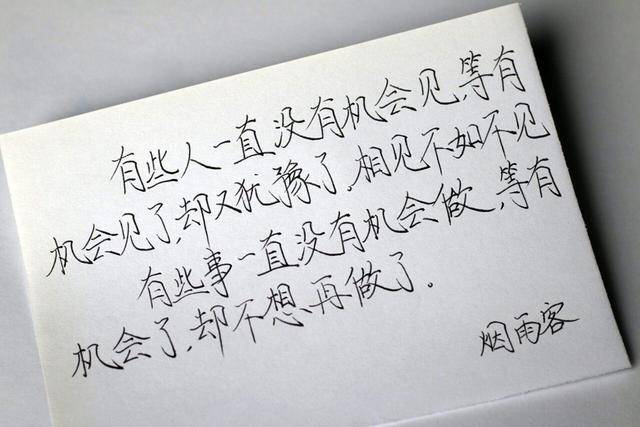 有些人一直没有机会见,等有
机会见了,却又犹豫了.相见不如不见
有些事一直没有机会做,等有
机会了,却不想再做了。
烟雨客